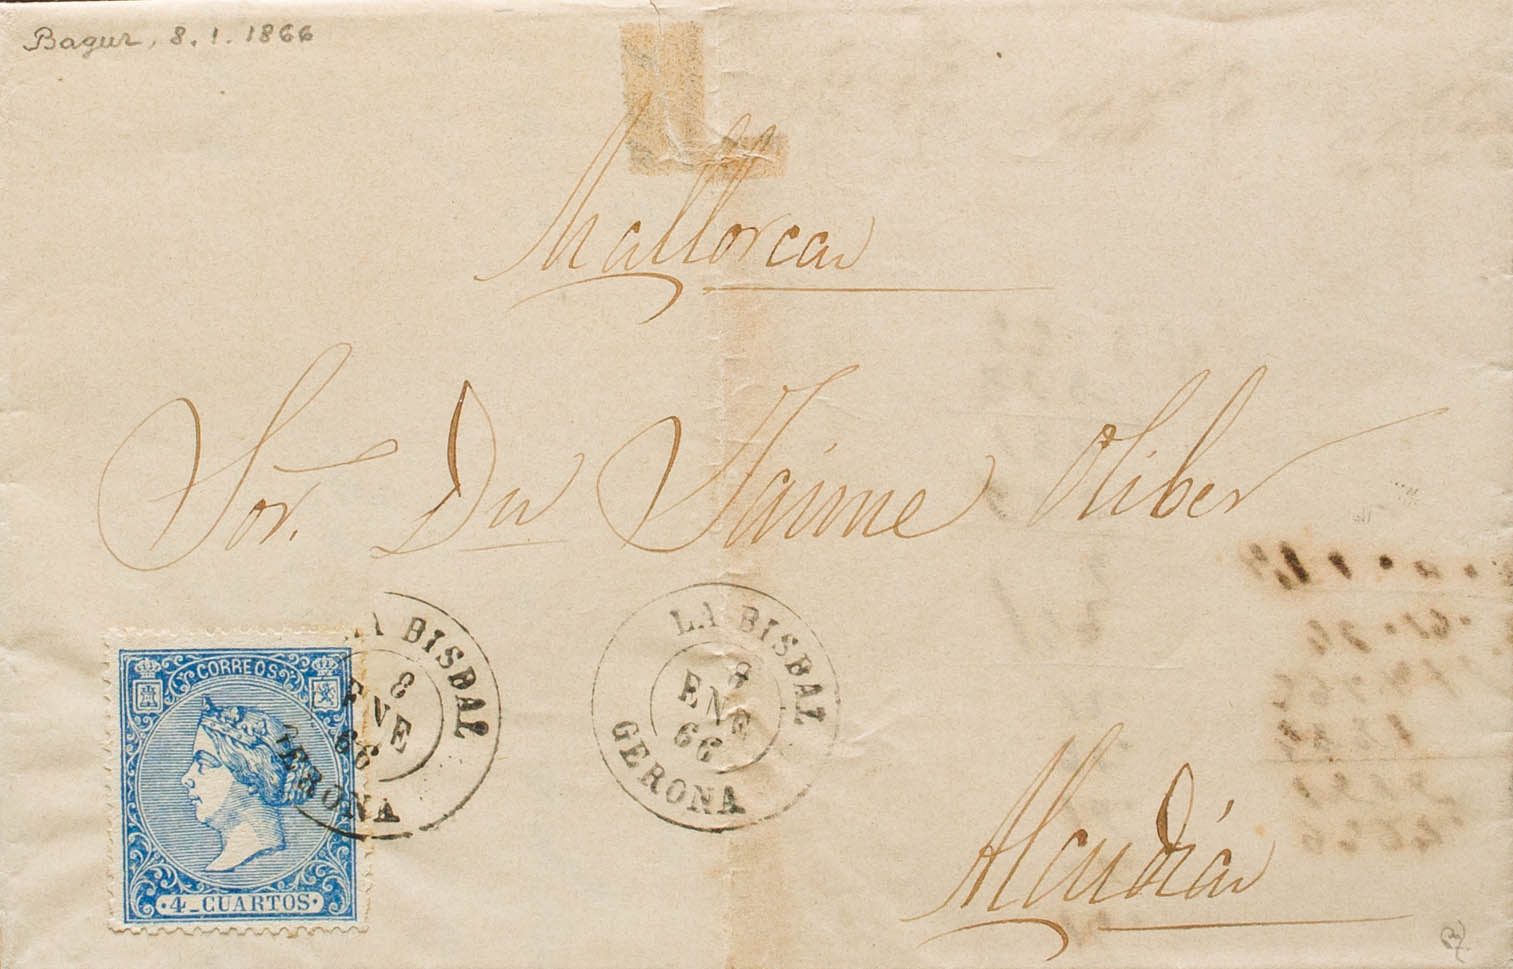 Bagur, 8.1.1866
Mallorca
Sor. Dn Jaime Oliber
LA BISBAL
8
ENE
66
GERONA
LA BISBAL
8
ENE
66
GERONA
CORREOS
4_CUARTOS
Alcudia